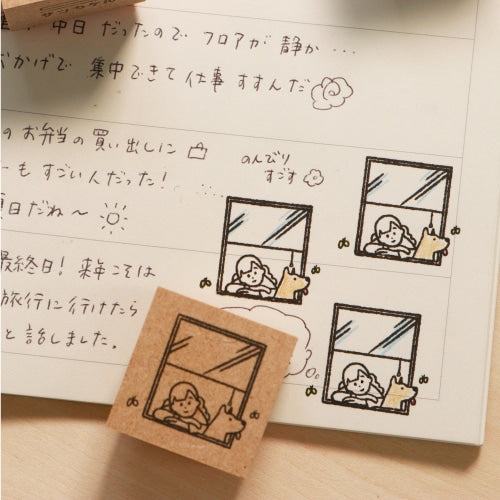 中日だったので フロアが 静か…
おかげで 集中できて 仕事 すすんだ
の お弁当の 買い出しに
のんびり
すごす
ーも すごい人だった!
日だね〜
最終日! 来年こそは
旅行に 行けたら
と 話しました。